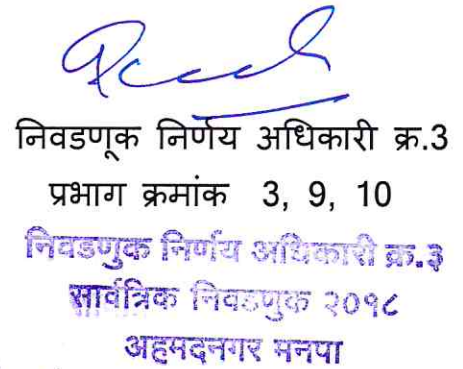 निवडणूक निर्णय अधिकारी क्र.3
प्रभाग क्रमांक 3, 9, 10
निवडणुक निर्णय अधिकारी क्र.३
सार्वत्रिक निवडणुक २०१८
अहमदनगर मनपा